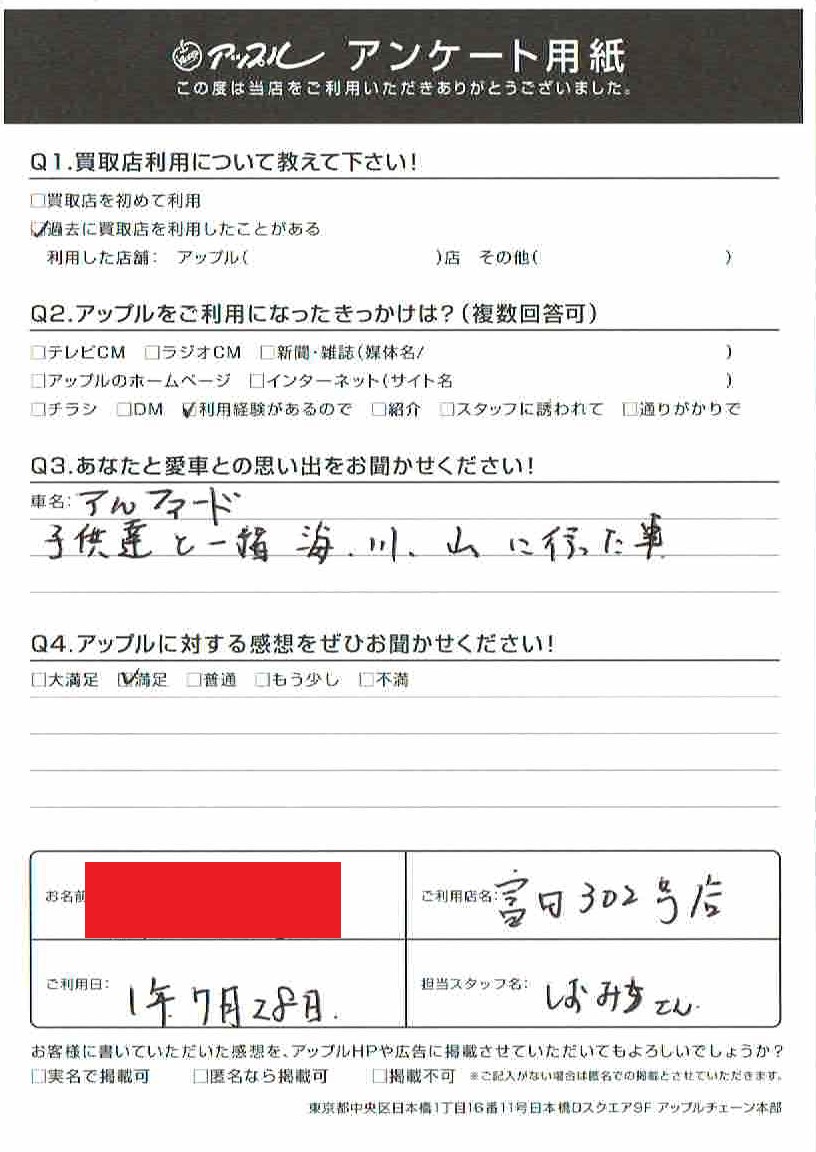 アップル アンケート用紙
この度は当店をご利用いただきありがとうございました。
Q1.買取店利用について教えて下さい!
□買取店を初めて利用
☑過去に買取店を利用したことがある
利用した店舗: アップル( )店 その他( )
Q2.アップルをご利用になったきっかけは?(複数回答可)
□テレビCM □ラジオCM □新聞・雑誌(媒体名/ )
□アップルのホームページ □インターネット(サイト名 )
□チラシ □DM ☑利用経験があるので □紹介 □スタッフに誘われて □通りがかりで
Q3.あなたと愛車との思い出をお聞かせください!
車名: アルファード
子供達と一緒 海、川、山に行った車
Q4.アップルに対する感想をぜひお聞かせください!
□大満足 ☑満足 □普通 □もう少し □不満
お名前
ご利用店名: 302号店
ご利用日: 1年7月28日.
担当スタッフ名: さん.
お客様に書いていただいた感想を、アップルHPや広告に掲載させていただいてもよろしいでしょうか?
□実名で掲載可 □匿名なら掲載可 □掲載不可 ※ご記入がない場合は匿名での掲載とさせていただきます。
東京都中央区日本橋1丁目16番11号日本橋Dスクエア9F アップルチェーン本部